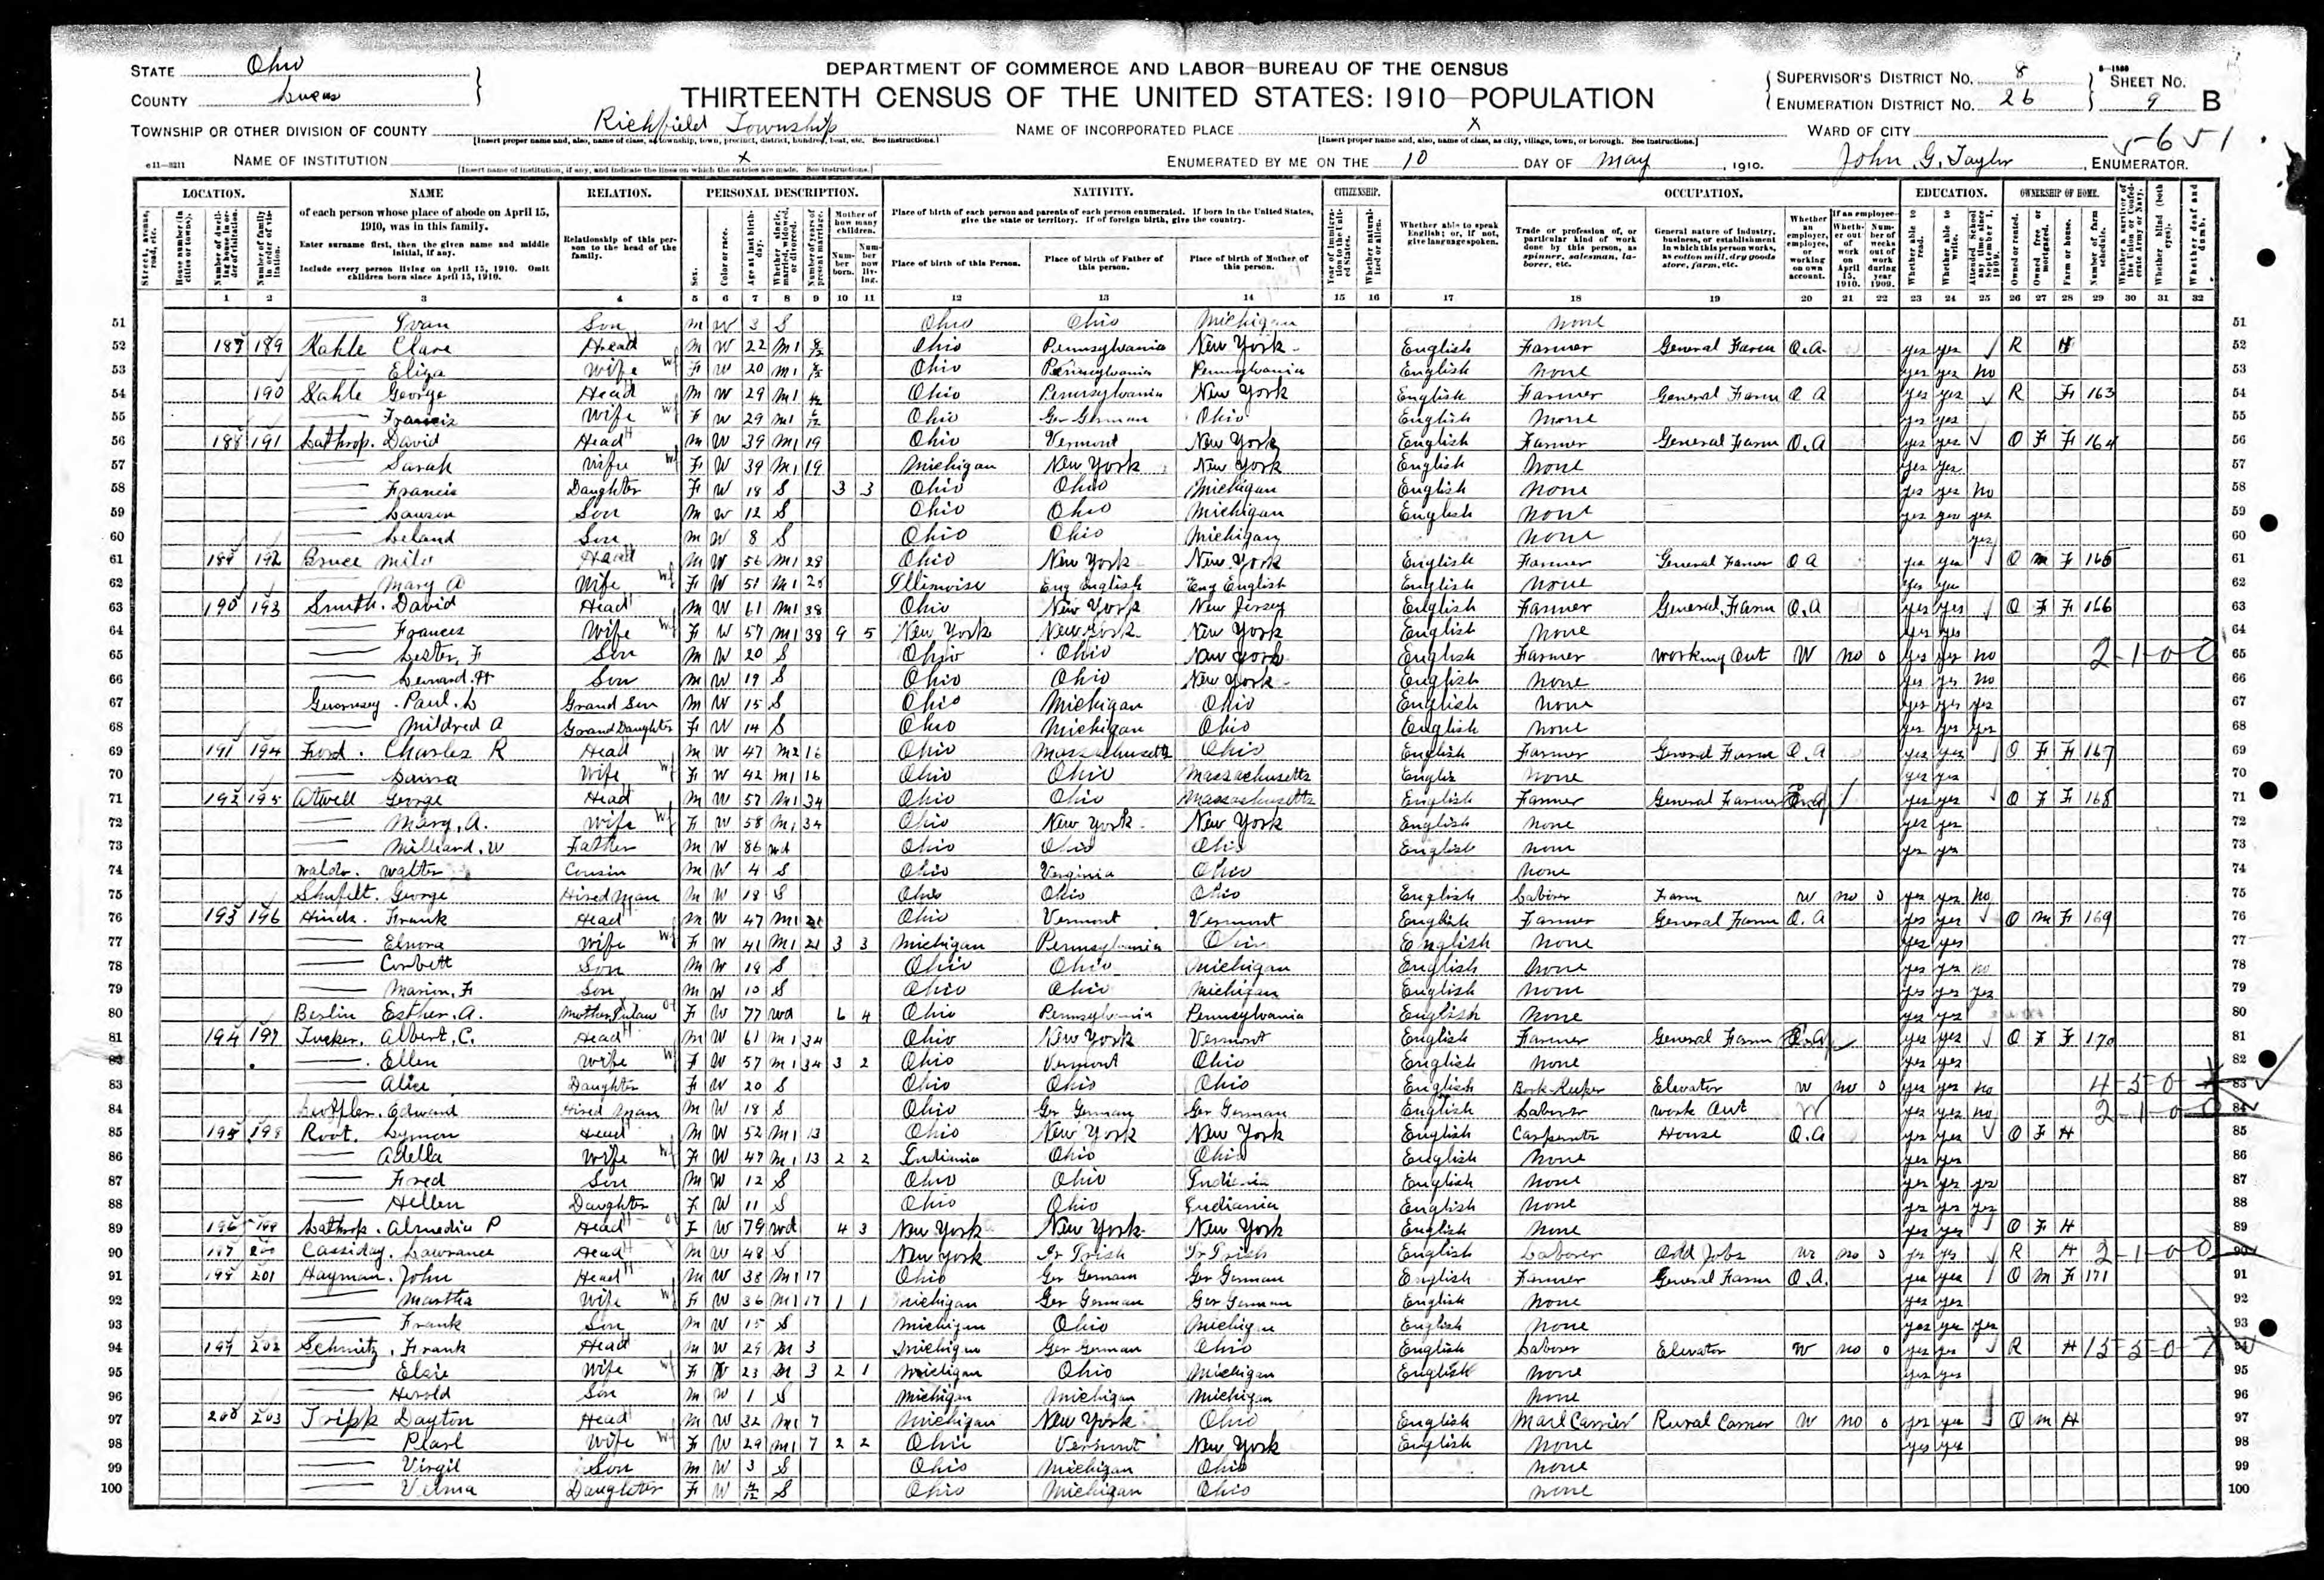 STATE Ohio
COUNTY Lucas
DEPARTMENT OF COMMERCE AND LABOR—BUREAU OF THE CENSUS
THIRTEENTH CENSUS OF THE UNITED STATES: 1910—POPULATION
SUPERVISOR'S DISTRICT No. 8
ENUMERATION DISTRICT No. 26
SHEET No. 9 B
TOWNSHIP OR OTHER DIVISION OF COUNTY Richfield Township
NAME OF INCORPORATED PLACE X
WARD OF CITY
5651
NAME OF INSTITUTION X
ENUMERATED BY ME ON THE 10 DAY OF May, 1910. John G. Taylor, ENUMERATOR.
LOCATION. NAME RELATION. PERSONAL DESCRIPTION. NATIVITY. CITIZENSHIP. OCCUPATION. EDUCATION. OWNERSHIP OF HOME.
of each person whose place of abode on April 15, 1910, was in this family.
Enter surname first, then the given name and middle initial, if any.
Include every person living on April 15, 1910. Omit children born since April 15, 1910.
Relationship of this person to the head of the family.
Place of birth of each person and parents of each person enumerated. If born in the United States, give the state or territory. If of foreign birth, give the country.
Place of birth of this Person. Place of birth of Father of this person. Place of birth of Mother of this person.
Whether able to speak English; or, if not, give language spoken.
1 2 3 4 5 6 7 8 9 10 11 12 13 14 15 16 17 18 19 20 21 22 23 24 25 26 27 28 29 30 31 32
51 Ivan Son M W 3 S Ohio Ohio Michigan none 51
52 189 Kahle Clare Head M W 22 M1 Ohio Pennsylvania New York English Farmer General Farm O.A. yes yes R H 52
53 Eliza Wife F W 20 M1 Ohio Pennsylvania Pennsylvania English none yes yes no 53
54 190 Kahle George Head M W 29 M1 Ohio Pennsylvania New York English Farmer General Farm O A yes yes R F 163 54
55 Francis Wife F W 29 M1 Ohio Ger German Ohio English none yes yes 55
56 188 191 Lathrop. David Head M W 39 M1 19 Ohio Vermont New York English Farmer General Farm O.A yes yes O F F 164 56
57 Sarah Wife F W 39 M1 19 Michigan New York New York English none yes yes 57
58 Francis Daughter F W 18 S 3 3 Ohio Ohio Michigan English none yes yes no 58
59 Lawson Son M W 12 S Ohio Ohio Michigan English none yes yes yes 59
60 Leland Son M W 8 S Ohio Ohio Michigan none yes 60
61 189 192 Bruce Milo Head M W 56 M1 28 Ohio New York New York English Farmer General Farmer O A yes yes O M F 165 61
62 Mary A Wife F W 51 M1 28 Illinoise Eng English Eng English English none yes yes 62
63 190 193 Smith. David Head M W 61 M1 38 Ohio New York New Jersey English Farmer General Farm O.A yes yes O F F 166 63
64 Frances Wife F W 57 M1 38 9 5 New York New York New York English none yes yes 64
65 Lester, F Son M W 20 S Ohio Ohio New York English Farmer Working Out W no 0 yes yes no 2-1-0-0 65
66 Son M W 19 S Ohio Ohio New York English none yes yes no 66
67 Guernsey. Paul. L Grand Son M W 15 S Ohio Michigan Ohio English none yes yes yes 67
68 Mildred A Grand Daughter F W 14 S Ohio Michigan Ohio English none yes yes yes 68
69 191 194 Ford. Charles R Head M W 47 M2 16 Ohio Massachusetts Ohio English Farmer General Farm O.A yes yes O F F 167 69
70 Wife F W 42 M1 16 Ohio Ohio Massachusetts none yes yes 70
71 192 195 Atwell George Head M W 57 M1 34 Ohio Ohio Massachusetts English Farmer General Farmer yes yes O F F 168 71
72 Mary, A. Wife F W 58 M1 34 Ohio New York New York English none yes yes 72
73 Milliard. W Father M W 86 wd Ohio Ohio Ohio English none yes yes 73
74 Waldo. Walter Cousin M W 4 S Ohio Virginia Ohio none 74
75 Shufelt. George Hired Man M W 18 S Ohio Ohio Ohio English Laborer Farm W no 0 yes yes no 75
76 193 196 Hinds. Frank Head M W 47 M1 21 Ohio Vermont Vermont English Farmer General Farm O.A yes yes O M F 169 76
77 Elnora Wife F W 41 M1 21 3 3 Michigan Pennsylvania Ohio English none yes yes 77
78 Corbett Son M W 18 S Ohio Ohio Michigan English none yes yes no 78
79 Marion, F Son M W 10 S Ohio Ohio Michigan English none yes yes yes 79
80 Berlin Esther. A. Mother In law F W 77 wd 6 4 Ohio Pennsylvania Pennsylvania English none yes yes 80
81 194 197 Tucker, Albert, C. Head M W 61 M1 34 Ohio New York Vermont English Farmer General Farm yes yes O F F 170 81
82 Ellen Wife F W 57 M1 34 3 2 Ohio Vermont Ohio English none yes yes 82
83 Alice Daughter F W 20 S Ohio Ohio Ohio English Book Keeper Elevator W no 0 yes yes no 83
84 Edward Hired Man M W 18 S Ohio Ger German Ger German English Laborer Work Out W yes yes no 2-1-0-0 84
85 195 198 Root. Lyman Head M W 52 M1 13 Ohio New York New York English Carpenter House O.A yes yes O F H 85
86 Adella Wife F W 47 M1 13 2 2 Indiania Ohio Ohio English none yes yes 86
87 Fred Son M W 12 S Ohio Ohio Indiania English none yes yes yes 87
88 Hellen Daughter F W 11 S Ohio Ohio Indiania English none yes yes yes 88
89 196 199 Lathrop. Almedia P Head F W 79 wd 4 3 New York New York New York English none yes yes O F H 89
90 197 200 Cassiday. Lawrance Head M W 48 S New York Ir Irish Ir Irish English Laborer Odd Jobs W no yes yes R H 2-1-0-0 90
91 198 201 Hayman. John Head M W 38 M1 17 Ohio Ger German Ger German English Farmer General Farm O.A. yes yes O M F 171 91
92 Martha Wife F W 36 M1 17 1 1 Michigan Ger German Ger German English none yes yes 92
93 Frank Son M W 15 S Michigan Ohio Michigan English none yes yes yes 93
94 199 202 Schmitz, Frank Head M W 29 M 3 Michigan Ger German Ohio English Laborer Elevator W no 0 yes yes R H 94
95 Elsie Wife F W 23 M 3 2 1 Michigan Ohio Michigan English none yes yes 95
96 Herold Son M W 1 S Michigan Michigan Michigan none 96
97 200 203 Tripp Dayton Head M W 32 M1 7 Michigan New York Ohio English Mail Carrier Rural Carrier W no 0 yes yes O M H 97
98 Pearl Wife F W 29 M1 7 2 2 Ohio Vermont New York English none yes yes 98
99 Virgil Son M W 3 S Ohio Michigan Ohio none 99
100 Velma Daughter F W S Ohio Michigan Ohio none 100